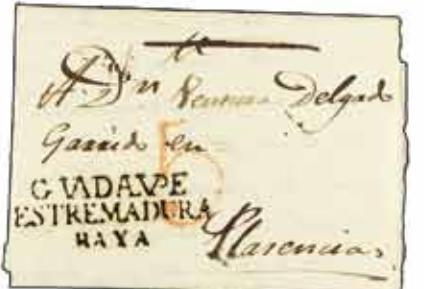 A Dⁿ Ventura Delgado
Garrido en
6
GVADALVPE
ESTREMADVRA
BAXA
Plasencia